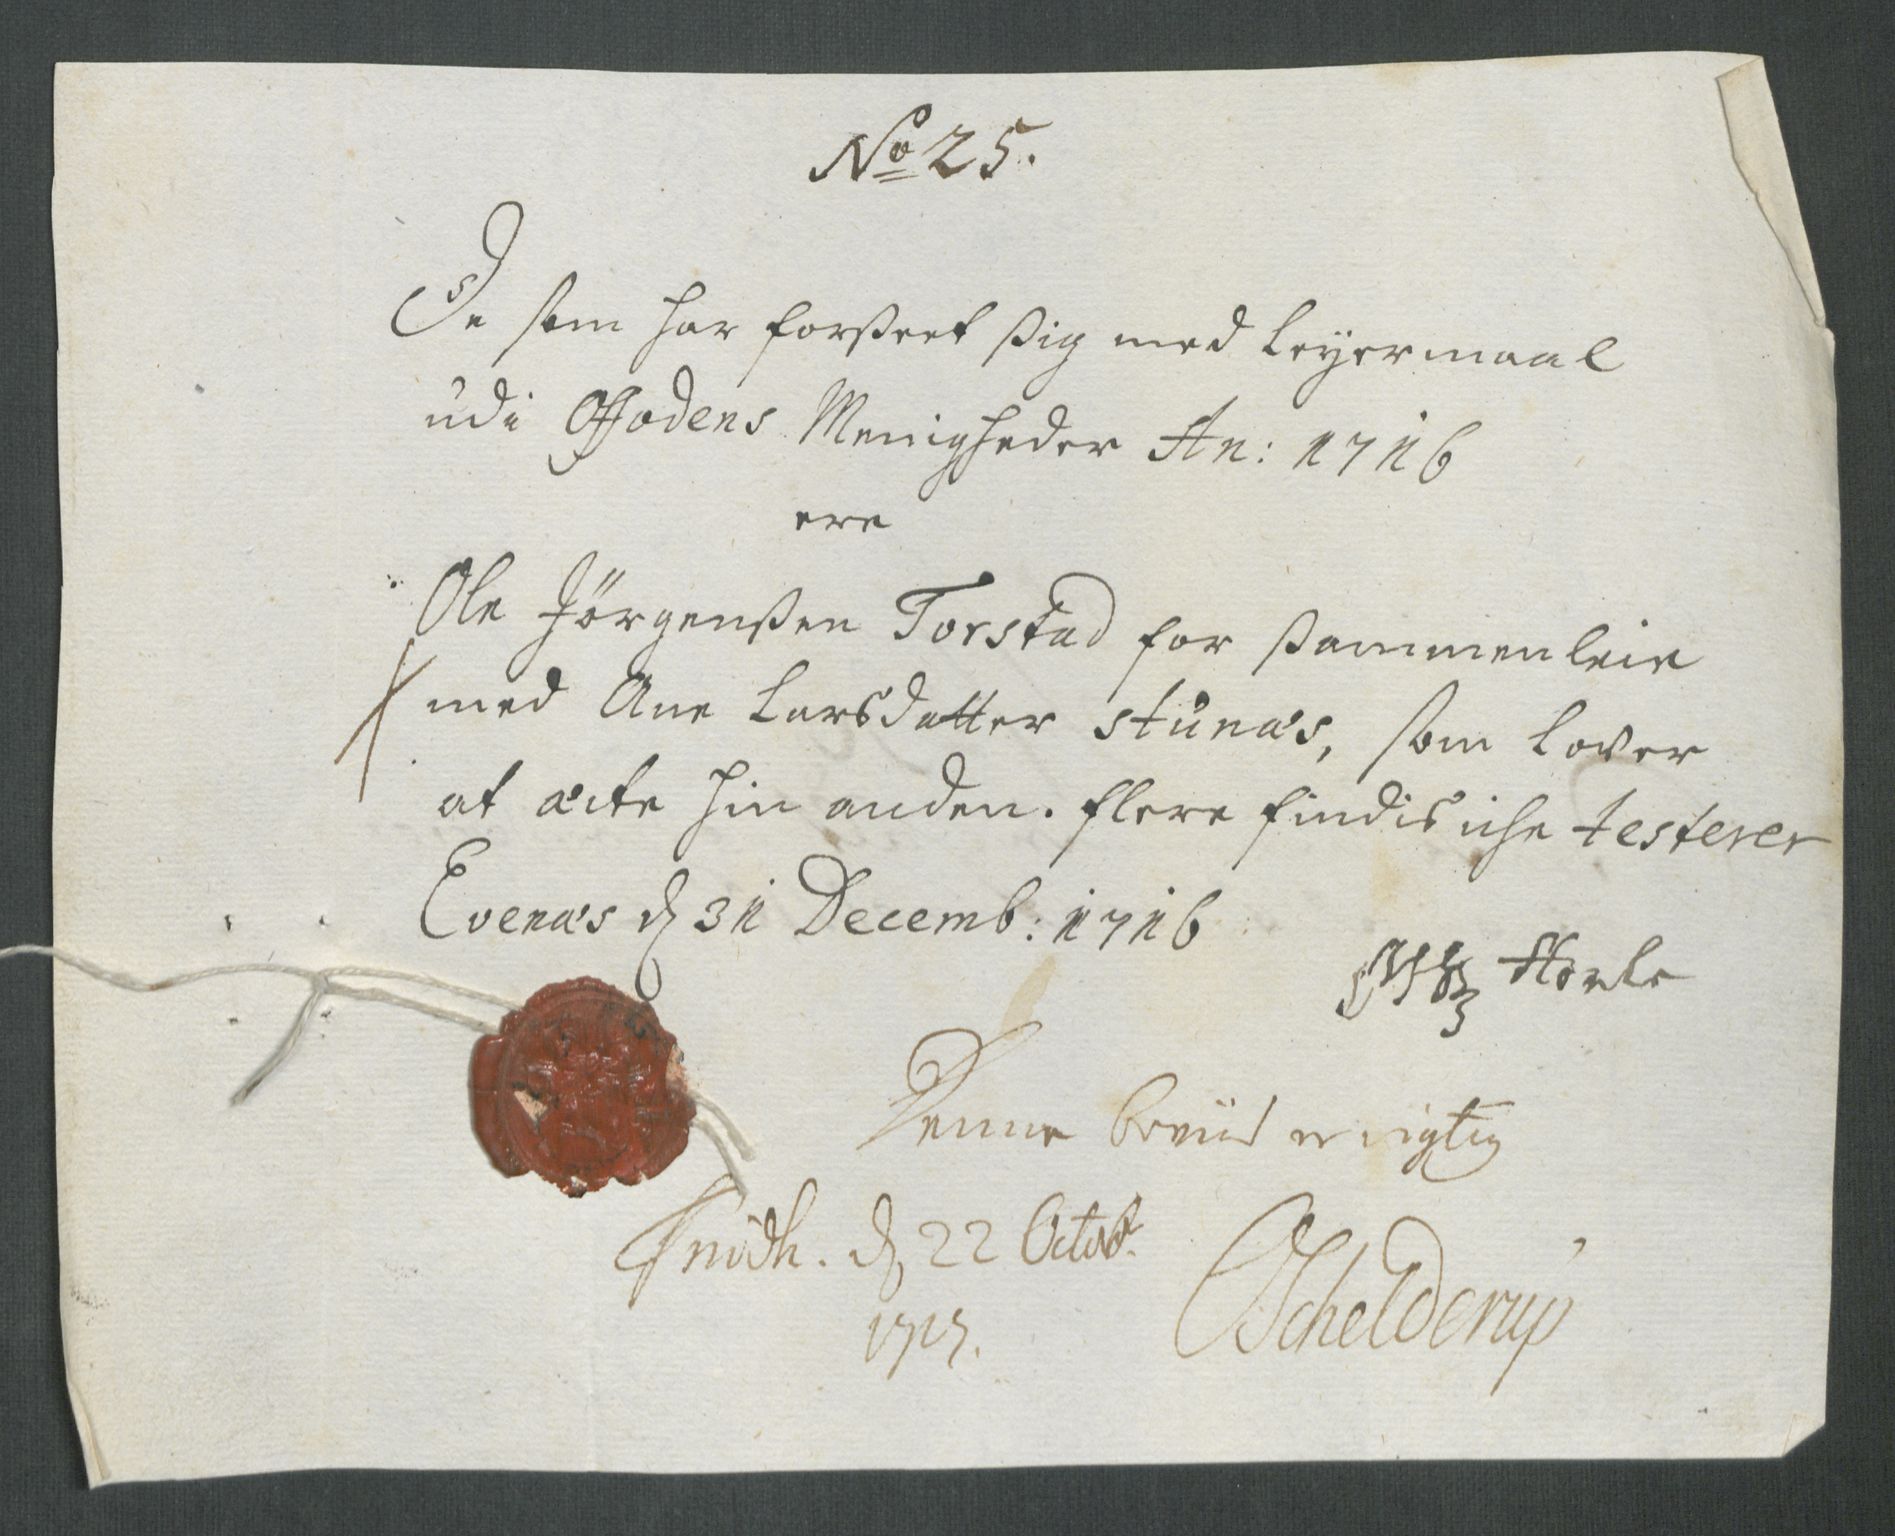 No 25.
De som har forßeet ßig med Leÿermaal
udi Ofodens Menigheder An: 1716
ere
Ole Jörgenßen Torstad for ßammenleie
med Ane Larsdatter stunæs, som Lover
at æcte hin anden. flere findis iche testerer
Evenæs d 31 Decemb: 1716
Denne beviis er rigtig
d 22 Octobr.
1717.
Schelderup